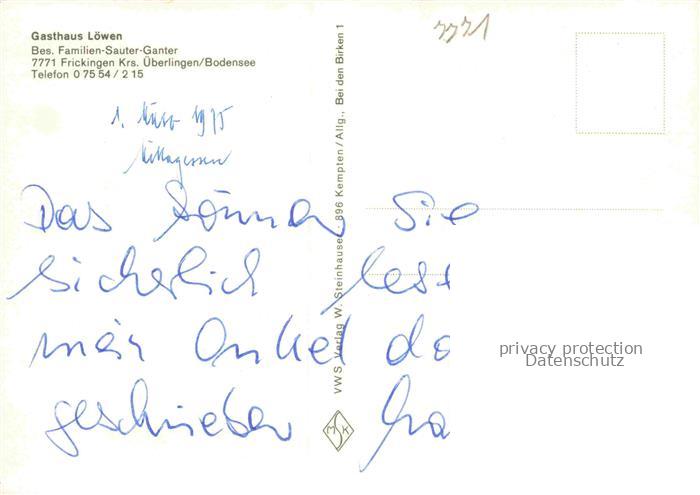 Gasthaus Löwen
Bes. Familien-Sauter-Ganter
7771 Frickingen Krs. Überlingen/Bodensee
Telefon 0 75 54 / 2 15
7771
1. März 1975
Mittagessen
Das können Sie
sicherlich lest
mein Onkel do
geschrieben ha
VWS Verlag W. Steinhauser 896 Kempten / Allg., Bei den Birken 1
MSK
privacy protection
Datenschutz